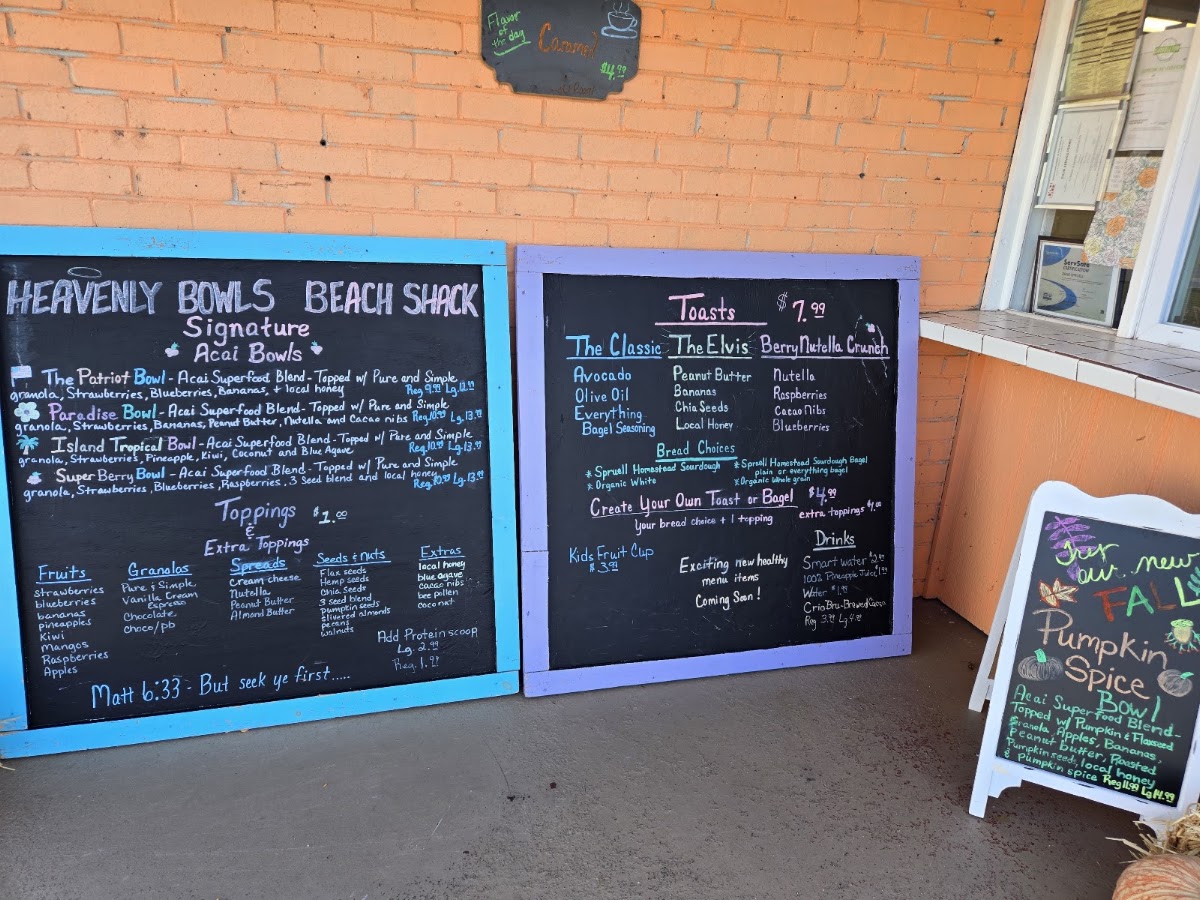 Flavor
of the
day
Caramel
$4.99
HEAVENLY BOWLS BEACH SHACK
Signature
Acai Bowls
The Patriot Bowl - Acai Superfood Blend - Topped w/ Pure and Simple
granola, Strawberries, Blueberries, Bananas, + local honey Reg 9.99 Lg.12.99
Paradise Bowl - Acai Superfood Blend - Topped w/ Pure and Simple
granola, Strawberries, Bananas, Peanut Butter, Nutella and Cacao nibs Reg.10.99 Lg.13.99
Island Tropical Bowl - Acai Superfood Blend - Topped w/ Pure and Simple
granola, Strawberries, Pineapple, Kiwi, Coconut and Blue Agave Reg.10.99 Lg.13.99
Super Berry Bowl - Acai Superfood Blend - Topped w/ Pure and Simple
granola, Strawberries, Blueberries, Raspberries, 3 Seed blend and local honey Reg.10.99 Lg.13.99
Toppings $1.00
&
Extra Toppings
Fruits
strawberries
blueberries
bananas
pineapples
Kiwi
Mangos
Raspberries
Apples
Granolas
Pure & Simple
Vanilla Cream
Espresso
Chocolate
Choco/pb
Spreads
Cream cheese
Nutella
Peanut Butter
Almond Butter
Seeds & nuts
Flax seeds
Hemp seeds
Chia Seeds
3 seed blend
pumpkin seeds
slivered almonds
pecans
walnuts
Extras
local honey
blue agave
cacao nibs
bee pollen
coconut
Add Protein scoop
Lg. 2.99
Reg. 1.99
Matt 6:33 - But seek ye first.....
Toasts $7.99
The Classic
Avocado
Olive Oil
Everything
Bagel Seasoning
The Elvis
Peanut Butter
Bananas
Chia Seeds
Local Honey
Berry Nutella Crunch
Nutella
Raspberries
Cacao Nibs
Blueberries
Bread Choices
* Spruell Homestead Sourdough
* Organic White
* Spruell Homestead Sourdough Bagel
plain or everything bagel
* Organic Whole grain
Create Your Own Toast or Bagel $4.99
Your bread choice + 1 topping
extra toppings $1.00
Kids Fruit Cup
$3.99
Exciting new healthy
menu items
Coming Soon!
Drinks
Smart water
100% Pineapple Juice
Water
Crio Bru-Brewed
ServSafe
our new
FALL
Pumpkin
Spice
Bowl
Acai Superfood Blend-
Topped w/ Pumpkin & Flaxseed
Granola, Apples, Bananas,
Peanut butter, Roasted
Pumpkin seeds, local honey
& Pumpkin spice Reg 11.99 Lg 14.99